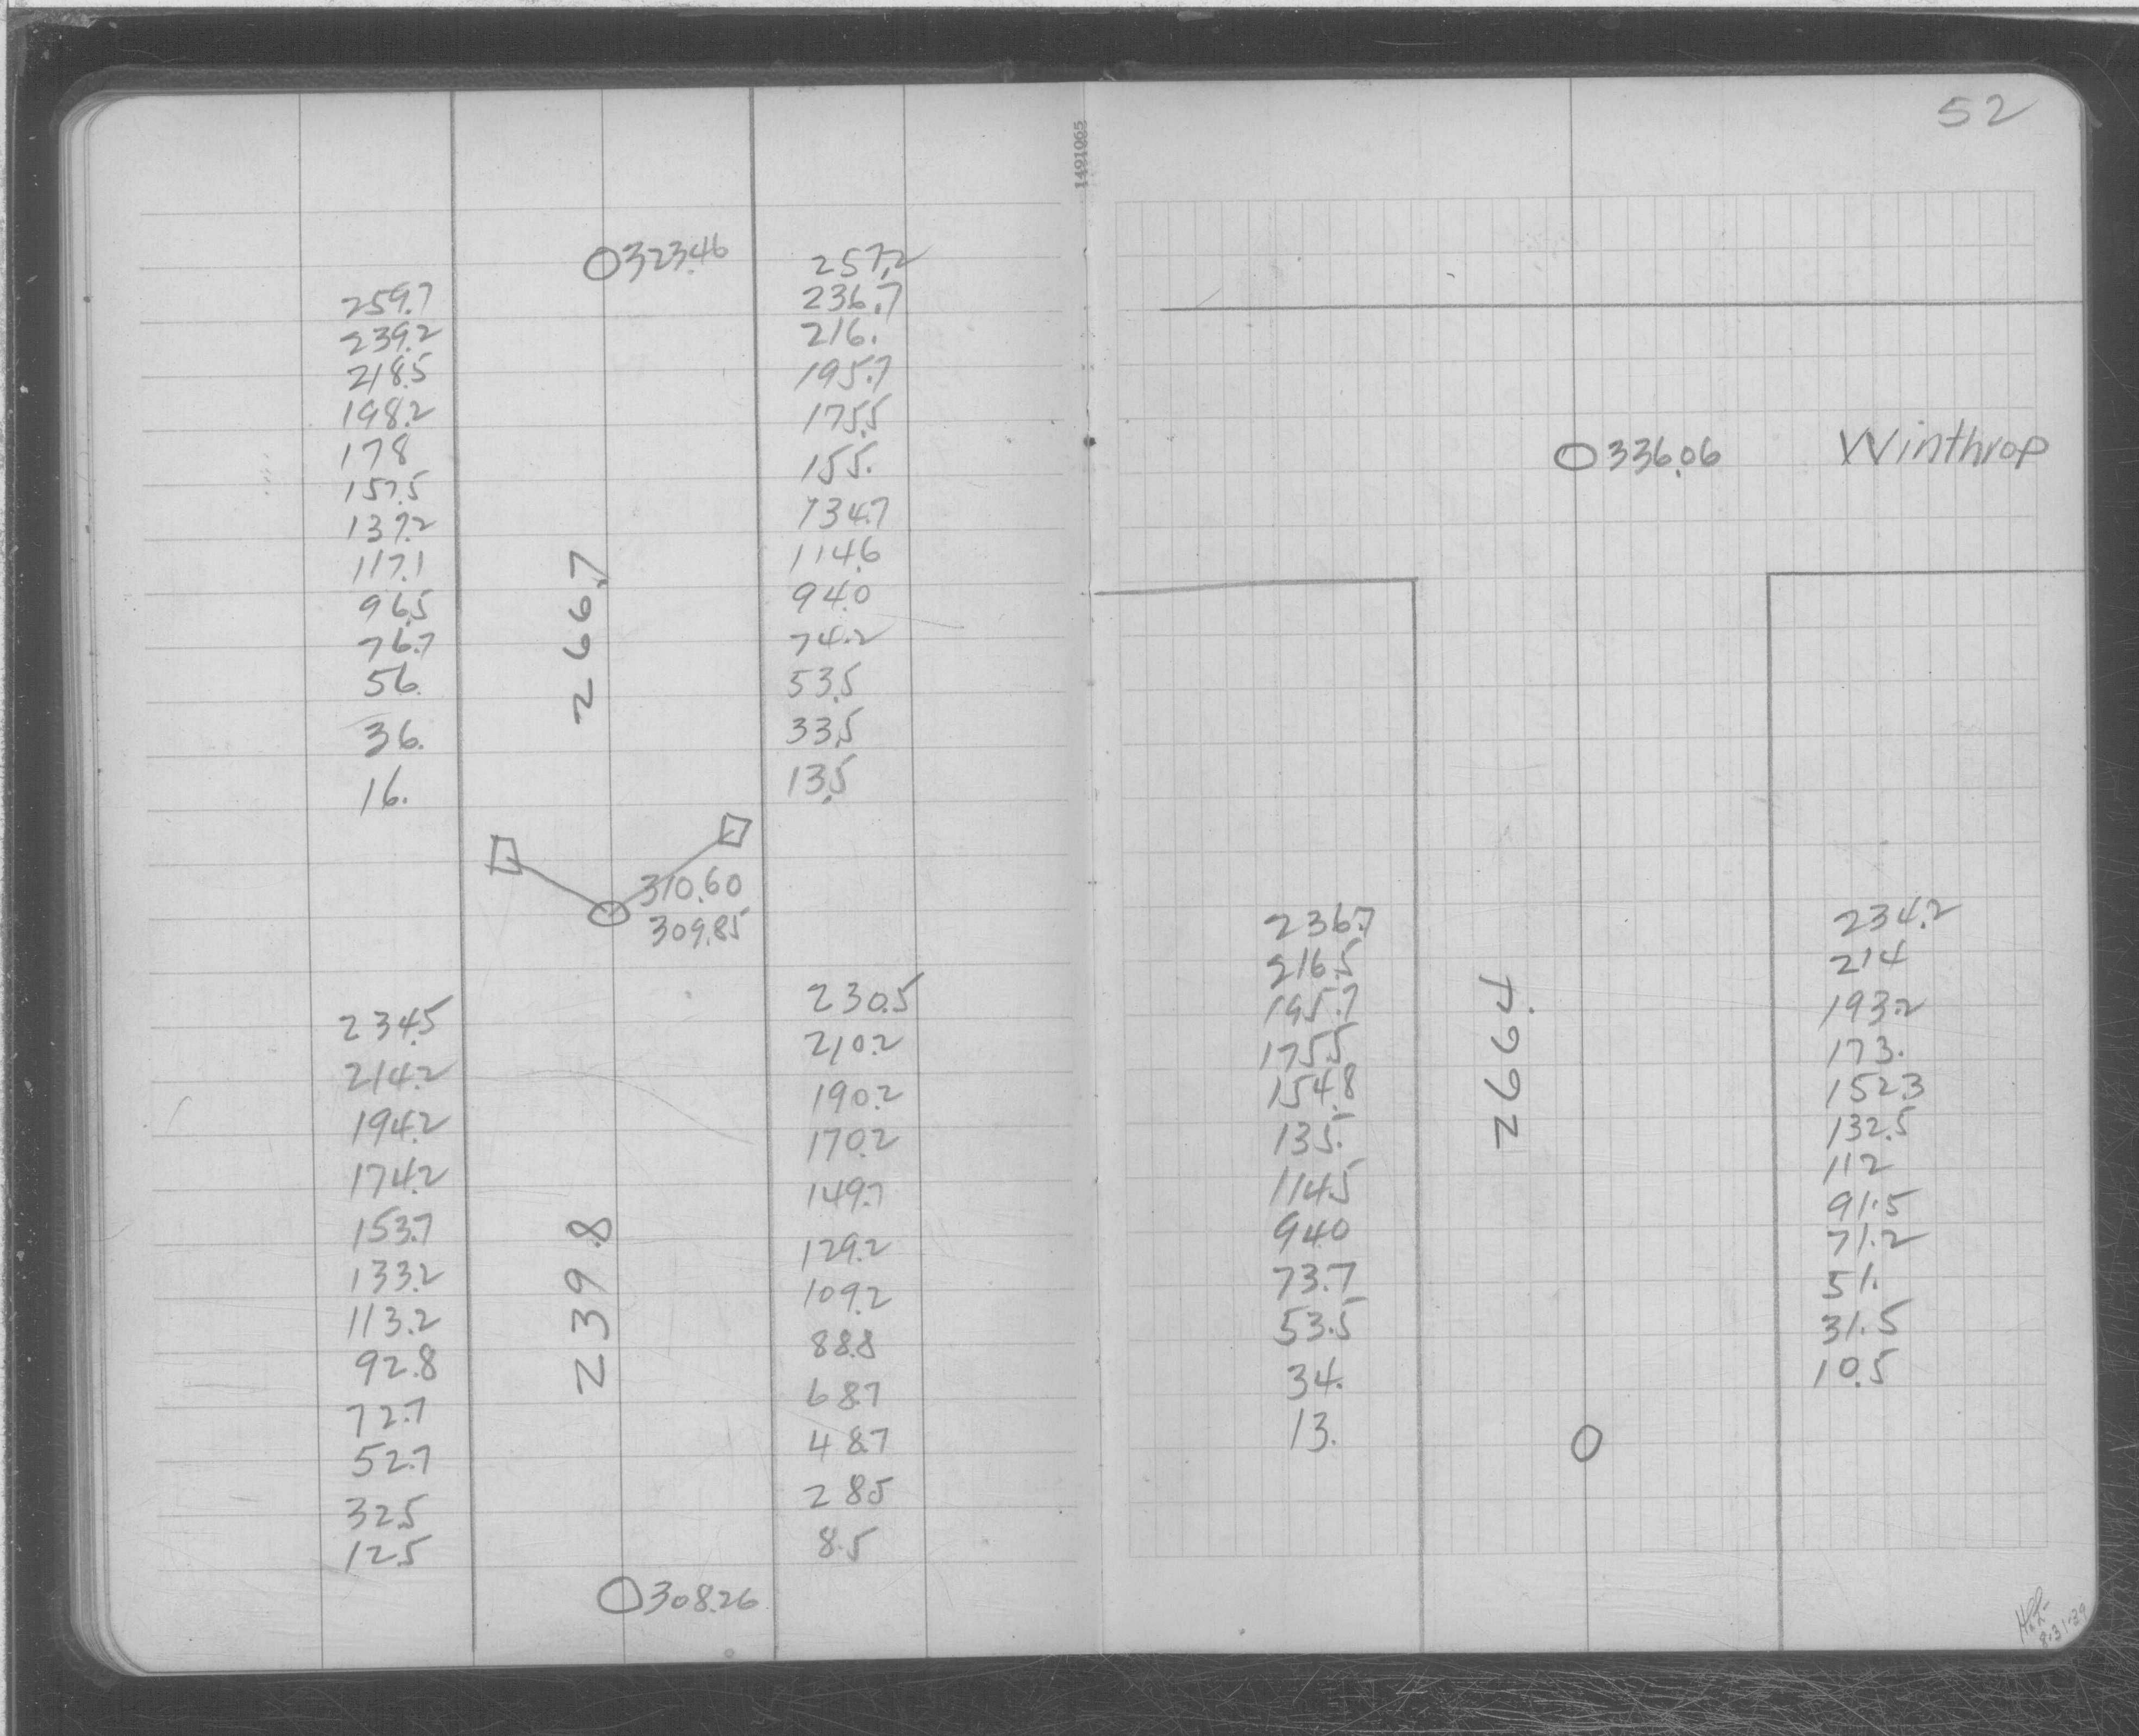 52
1491065
O 323.46 257.2
259.7 236.7
239.2 216.
218.5 195.7
198.2 175.5
178 155.
157.5 134.7
137.2 114.6
117.1 94.0
96.5 74.2
76.7 53.5
56. 33.5
36. 13.5
16.
266.7
310.60
309.85
234.5 230.5
214.2 210.2
194.2 190.2
174.2 170.2
153.7 149.7
133.2 129.2
113.2 109.2
92.8 88.8
72.7 68.7
52.7 48.7
32.5 28.5
12.5 8.5
239.8
O 308.26
O 336.06 Winthrop
236.7 234.2
216.5 214
195.7 193.2
175.5 173.
154.8 152.3
135. 132.5
114.5 112
94.0 91.5
73.7 71.2
53.5 51.
34. 31.5
13. 10.5
266.4
8-31-39